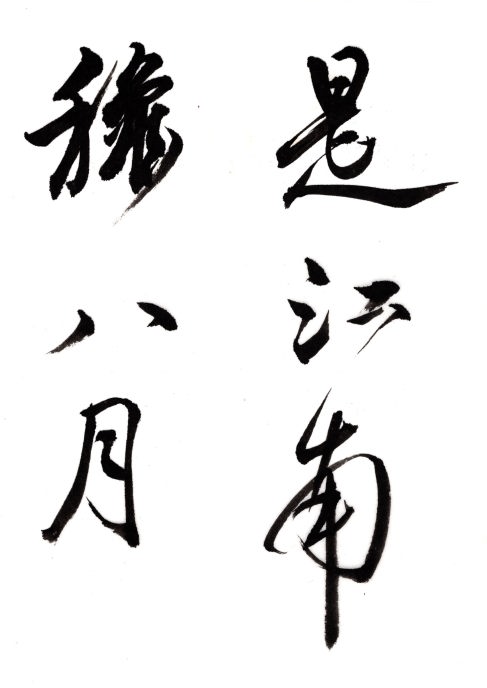 是江南
八月